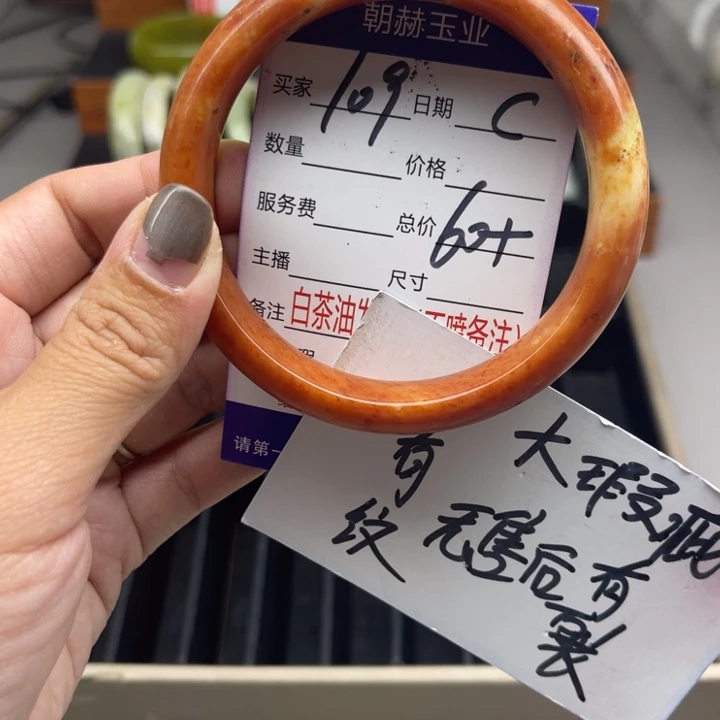 朝赫玉业
买家 109 日期 C
数量 价格
服务费 总价 60+
主播 尺寸
备注 白茶油 不喷备注)
请第一
有 大瑕疵
纹 无售后有
裂